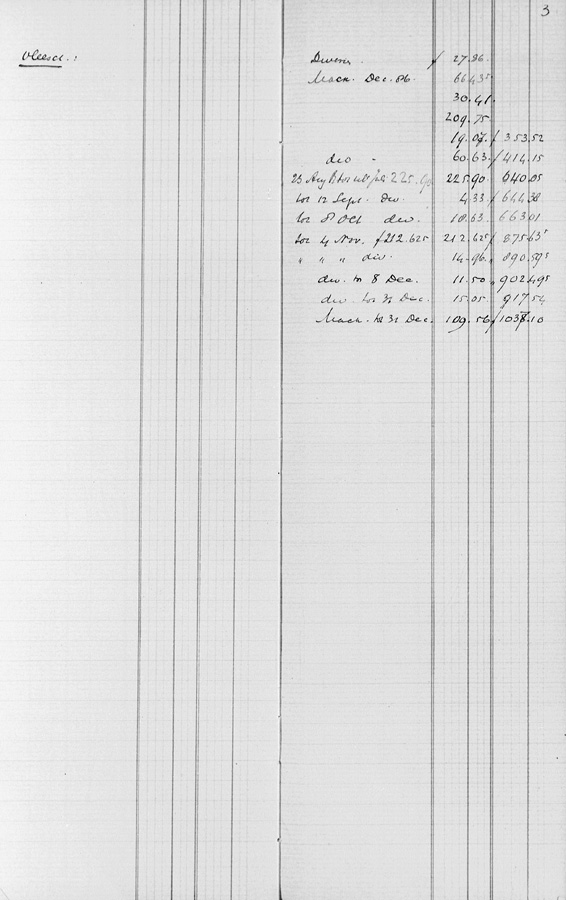 3
Vleesch:
Diversen. f 27.86.
Maan. Dec. 86. 66.43⁵
30.41.
209.75
19.07. f 353.52
div - 60.63. f 414.15
23 Aug 225.90 225.90 640.05
tot 12 Sept. div. 4.33 f 644.38
tot 8 Oct div. 18.63. 663.01
tot 4 Nov. f 212.625 212.62⁵ f 875.63⁵
" " " div. 14.96. " 890.59⁵
div. tot 8 Dec. 11.50 " 902.49⁵
div tot 31 Dec. 15.05. 917.54
Maan. tot 31 Dec. 109.56 f 1037.10